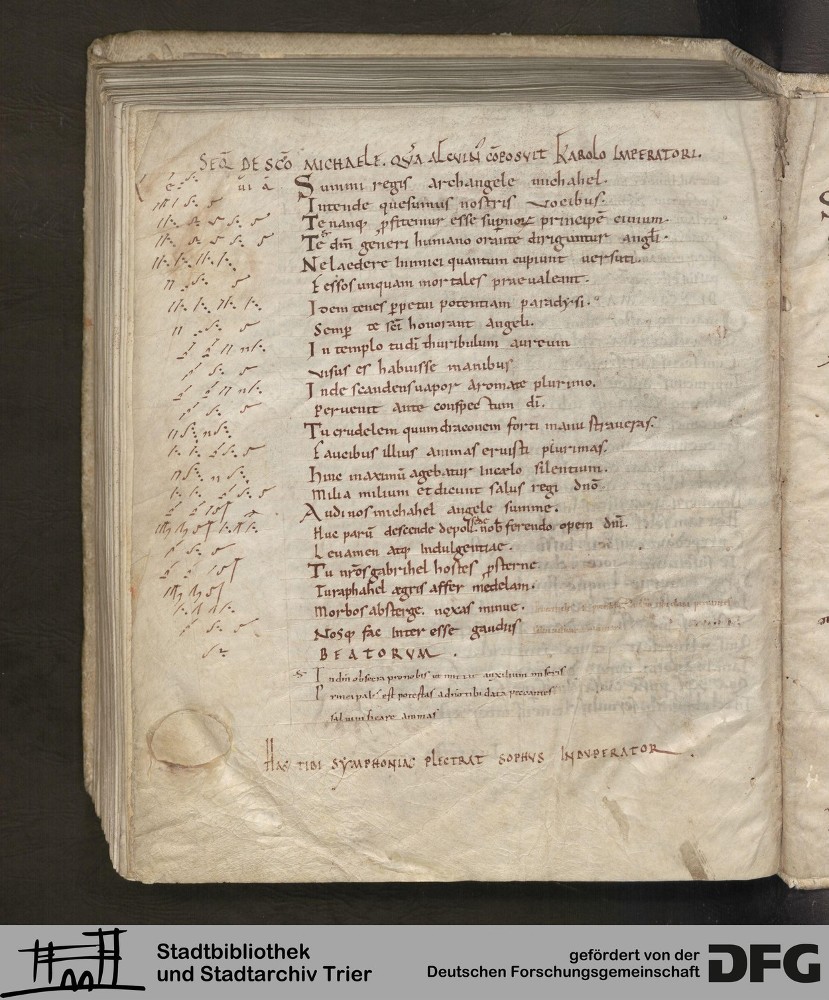 SEQ̄ DE SC̄O MICHAELE. QVA ALCVIN̄ CŌPOSVIT KAROLO IMPERATORI.
Summi regis archangele michahel.
Intende quesumus nostris vocibus.
Te nanq; ꝓfitemur esse suꝑnoꝝ principē ciuium.
Te dm̄ generi humano orante diriguntur angłi.
Ne laedere inimici quantum cupiunt uersuti.
Fessos unquam mortales praeualeant.
Idem tenes ꝑpetui potentiam paradysi.
Semꝑ te sc̄i honorant angeli.
In templo tu dī thuribulum aureum
visus es habuisse manibus
Inde scandens uapor aromate plurimo.
Peruenit ante conspectum dī.
Tu crudelem quum draconem forti manu straueras.
Faucibus illius animas eruisti plurimas.
Hinc maximū agebatur incaelo silentium.
Milia milium et dicunt salus regi dnō
Audi nos michahel angele summe.
Huc parū descende de poli sede nob ferendo opem dnī.
Leuamen atq; indulgentiae.
Tu nr̄os gabrihel hostes ꝓsterne
Tu raphahel ægris affer medelam.
Morbos absterge. noxas minue.
Nosq; fac interesse gaudiis
BEATORVM.
saluificare animas
Has tibi symphonias plectrat sophus induperator.
Stadtbibliothek
und Stadtarchiv Trier
gefördert von der
Deutschen Forschungsgemeinschaft
DFG